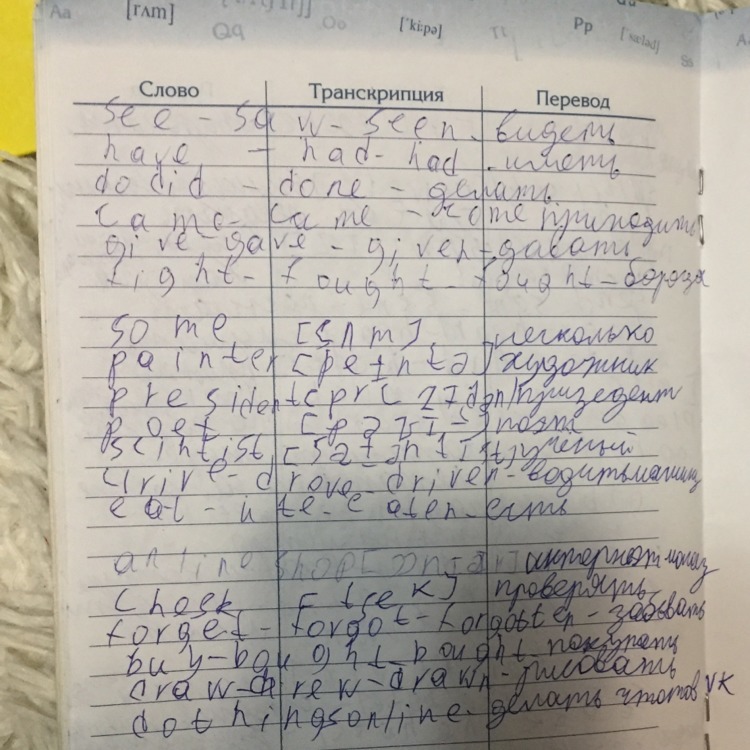 Aa [rʌm] Qq Oo ['ki:pə] Pp Ss
Слово Транскрипция Перевод
see - saw - seen - видеть
have - had - had - иметь
do did - done - делать
came - came - come приходить
give - gave - given - давать
fight - fought - fought - бороза
some [sʌm] несколько
painter [peɪntə] художник
president призедент
poet поэт
scintist учёный
drive - drove - driven - водить машину
eat - ate - eaten - есть
online shop
check [tʃek] проверять
forget - forgot - forgotten - забывать
buy - bought - bought - покупать
draw - drew - drawn - рисовать
do things online - делать что то в VK